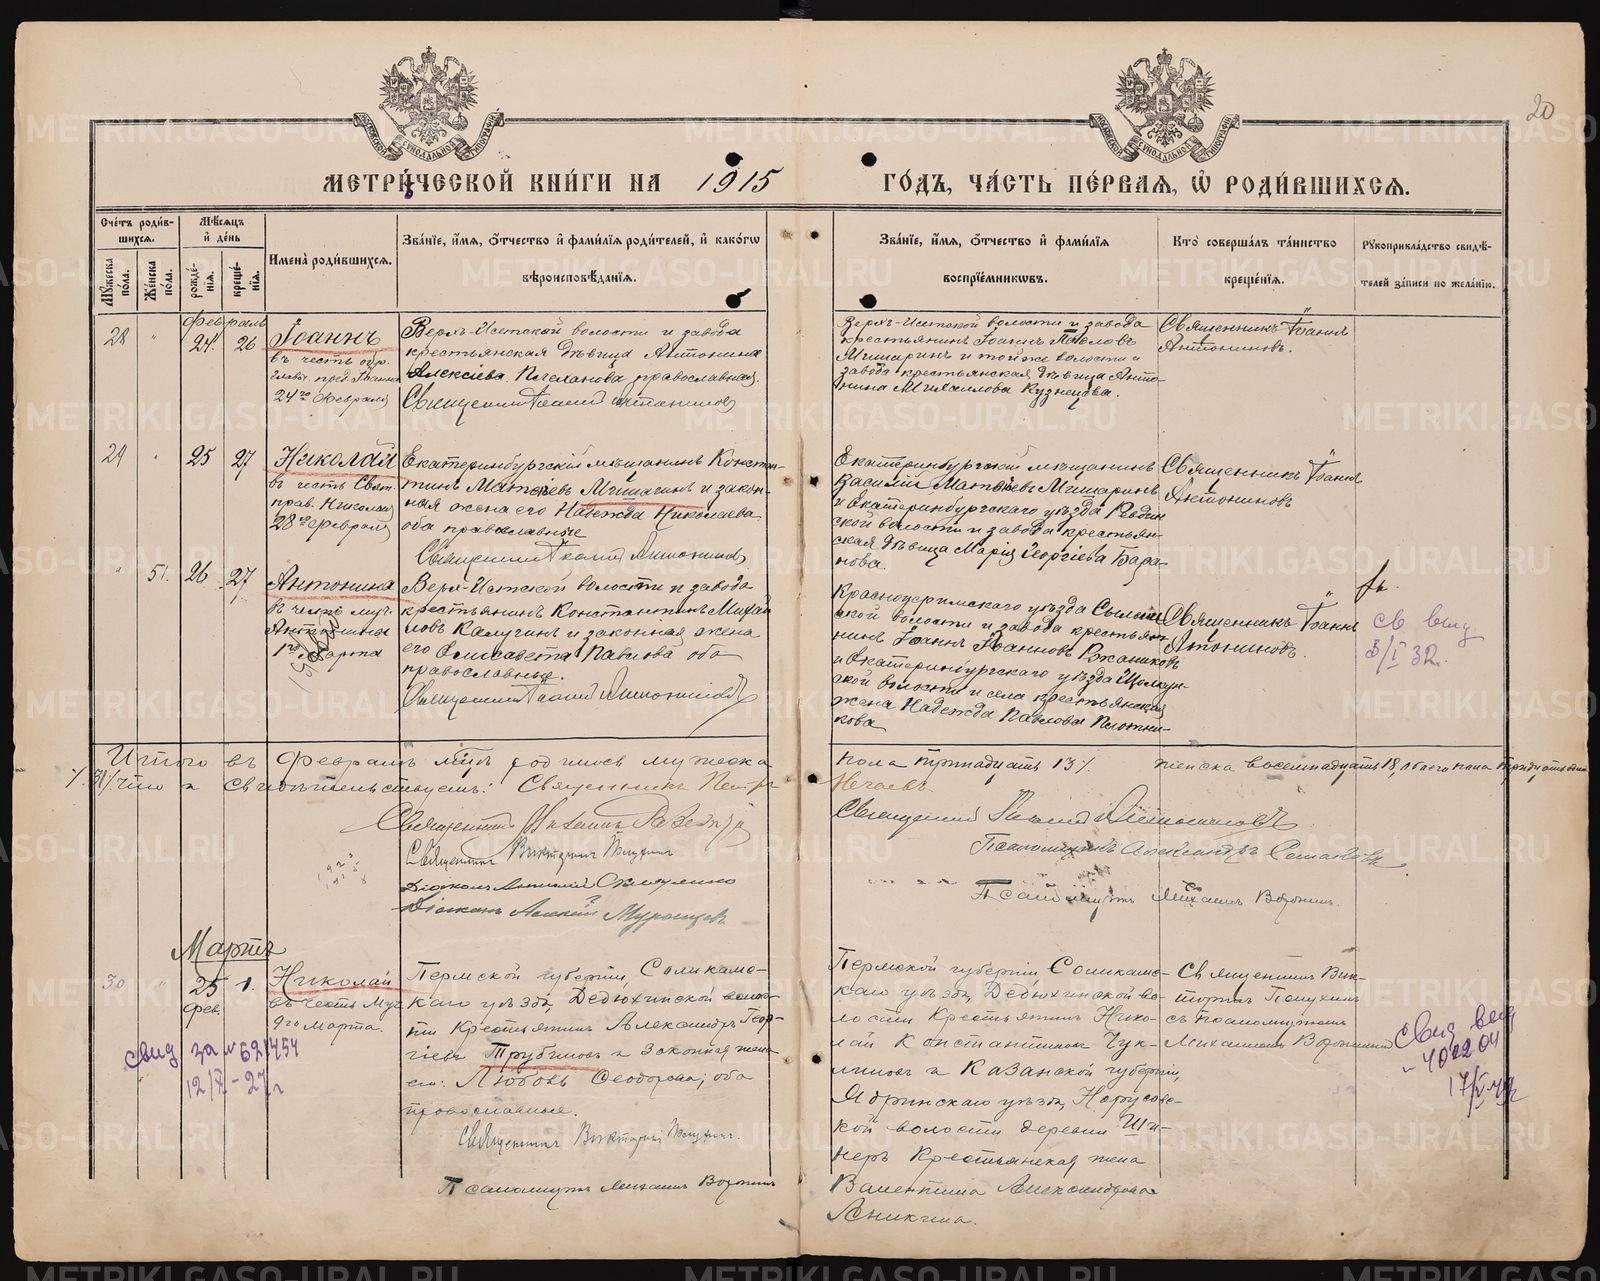 20
МЕТРИЧЕСКОЙ КНИГИ НА 1915 ГОДЪ, ЧАСТЬ ПЕРВАЯ, Ѡ РОДИВШИХСЯ.
Счетъ родив-
шихся.
Мѣсяцъ
и день
Мужеска
пола.
Женска
пола.
рожде-
нія.
креще-
нія.
Имена родившихся.
Званіе, имя, отчество и фамилія родителей, и какого
вѣроисповѣданія.
Званіе, имя, отчество и фамилія
воспріемниковъ.
Кто совершалъ таинство
крещенія.
Рукоприкладство свидѣ-
телей записи по желанію.
Февраль
28 " 24. 26
Іоаннъ
въ честь обр.
главы пред. Іоанна
24го Февраля
Верхъ-Исетской волости и завода
крестьянская дѣвица Антонина
Алексіева Плеханова православная.
Священникъ Іоаннъ Антониновъ
Верхъ-Исетской волости и завода
крестьянинъ Іоаннъ Павловъ
Мишаринъ и той же волости и
завода крестьянская дѣвица Анто-
нина Михаилова Кузнецова.
Священникъ Іоаннъ
Антониновъ.
29 " 25 27
Николай
въ честь Свят.
прав. Николая
28го Февраля
Екатеринбургскій мѣщанинъ Констан-
тинъ Матѳіевъ Мишаринъ и закон-
ная жена его Надежда Николаева
оба православные
Священникъ Іоаннъ Антониновъ
Екатеринбургскій мѣщанинъ
Василій Матѳіевъ Мишаринъ
и Екатеринбургскаго уѣзда Ревдин
ской волости и завода крестьян-
ская дѣвица Марія Георгіева Бара-
нова.
Священникъ Іоаннъ
Антониновъ
" 51. 26 27
Антонина
въ честь муч.
Антонины
1го Марта
Верхъ-Исетской волости и завода
крестьянинъ Константинъ Михай
ловъ Калугинъ и законная жена
его Елисавета Павлова оба
православные.
Священникъ Іоаннъ Антониновъ
Красноуфимскаго уѣзда Сылвин
ской волости и завода крестьян-
нинъ Іоаннъ Іоанновъ Рожанниковъ
и Екатеринбургскаго уѣзда Щелкун-
ской волости и села крестьянская
жена Надежда Павлова Плотни-
кова
Священникъ Іоаннъ
Антониновъ.
св выд
5/I 32.
Итого въ Февралѣ мцѣ родилось мужеска
пола тринадцать 13, женска восемнадцать 18, обоего пола тридцать одинъ
31, что и свидѣтельствуемъ: Священникъ Петръ
Нечаевъ.
Священникъ
Священникъ Іоаннъ Антониновъ
Священникъ Викторинъ Пашихинъ
Псаломщикъ Александръ
Діаконъ
Діаконъ Алексій Муромцевъ
Псаломщикъ Михаилъ Воронинъ.
Мартъ
30 " 25 1.
Фев.
Николай
въ честь Муч
9го Марта.
свид за № 621454
12/X-27 г
Пермской губерніи, Соликамс-
каго уѣзда, Дедюхинской волос-
ти Крестьянинъ Александръ Геор-
гіевъ Трубиновъ и законная жена
его: Любовь Феодорова; оба
православные.
Священникъ Викторинъ Пашихинъ.
Псаломщикъ Михаилъ Воронинъ
Пермской губерніи Соликамс-
каго уѣзда, Дедюхинской во-
лости Крестьянинъ Нико-
лай Константиновъ Чук-
линовъ и Казанской губерніи,
Ядринскаго уѣзда, Норусовс-
кой волости деревни Ши-
неръ Крестьянская жена
Валентина Александрова
Аникина.
Священникъ Вик-
торинъ Пашихинъ
съ псаломщикомъ
Михаиломъ Воронинымъ
свид выд
402204
METRIKI.GASO-URAL.RU